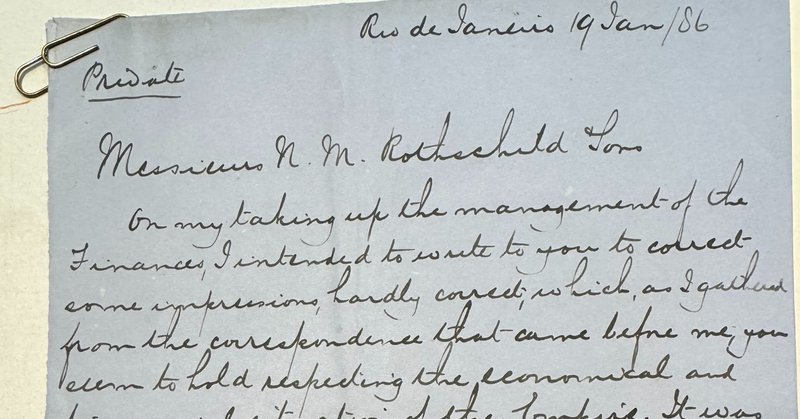 Rio de Janeiro 19 Jan/86
Private
Messieurs N. M. Rothschild & Sons
On my taking up the management of the
Finances, I intended to write to you to correct
some impressions, hardly correct, which, as I gathered
from the correspondence that came before me, you
seem to hold respecting the economical and
of the Empire. It was